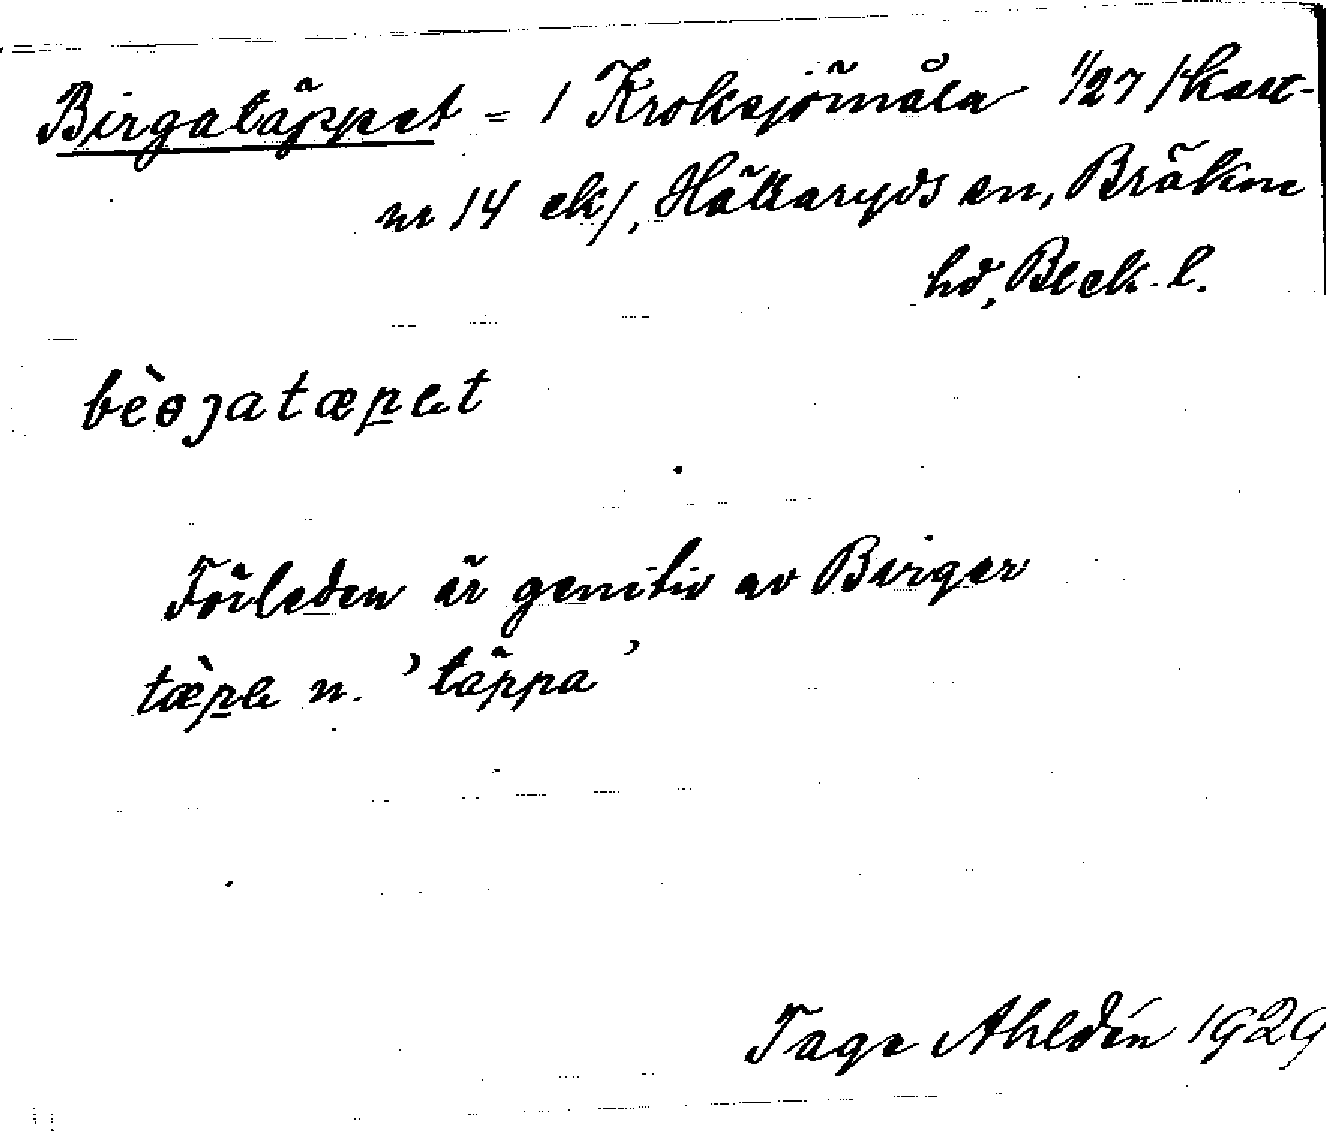 Birgatäppet = 1 Kroksjömåla 1/27 /skatt-
nr 14 ek/, Hällaryds sn, Bräkne
hd, Blek. l.
bèɵȷatæpet
Förleden är genitiv av Birger
tæ̀pe n. 'täppa'
Tage Ahldén 1929